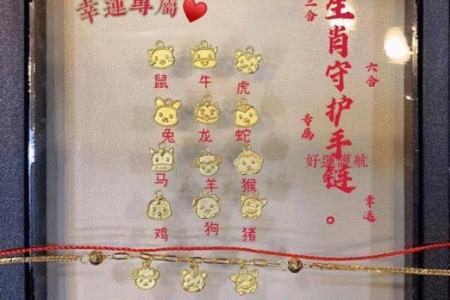 幸運專屬❤
三合
生肖守护手链。
六合
专属
好運護航
幸运
鼠 牛 虎
兔 龙 蛇
马 羊 猴
鸡 狗 猪